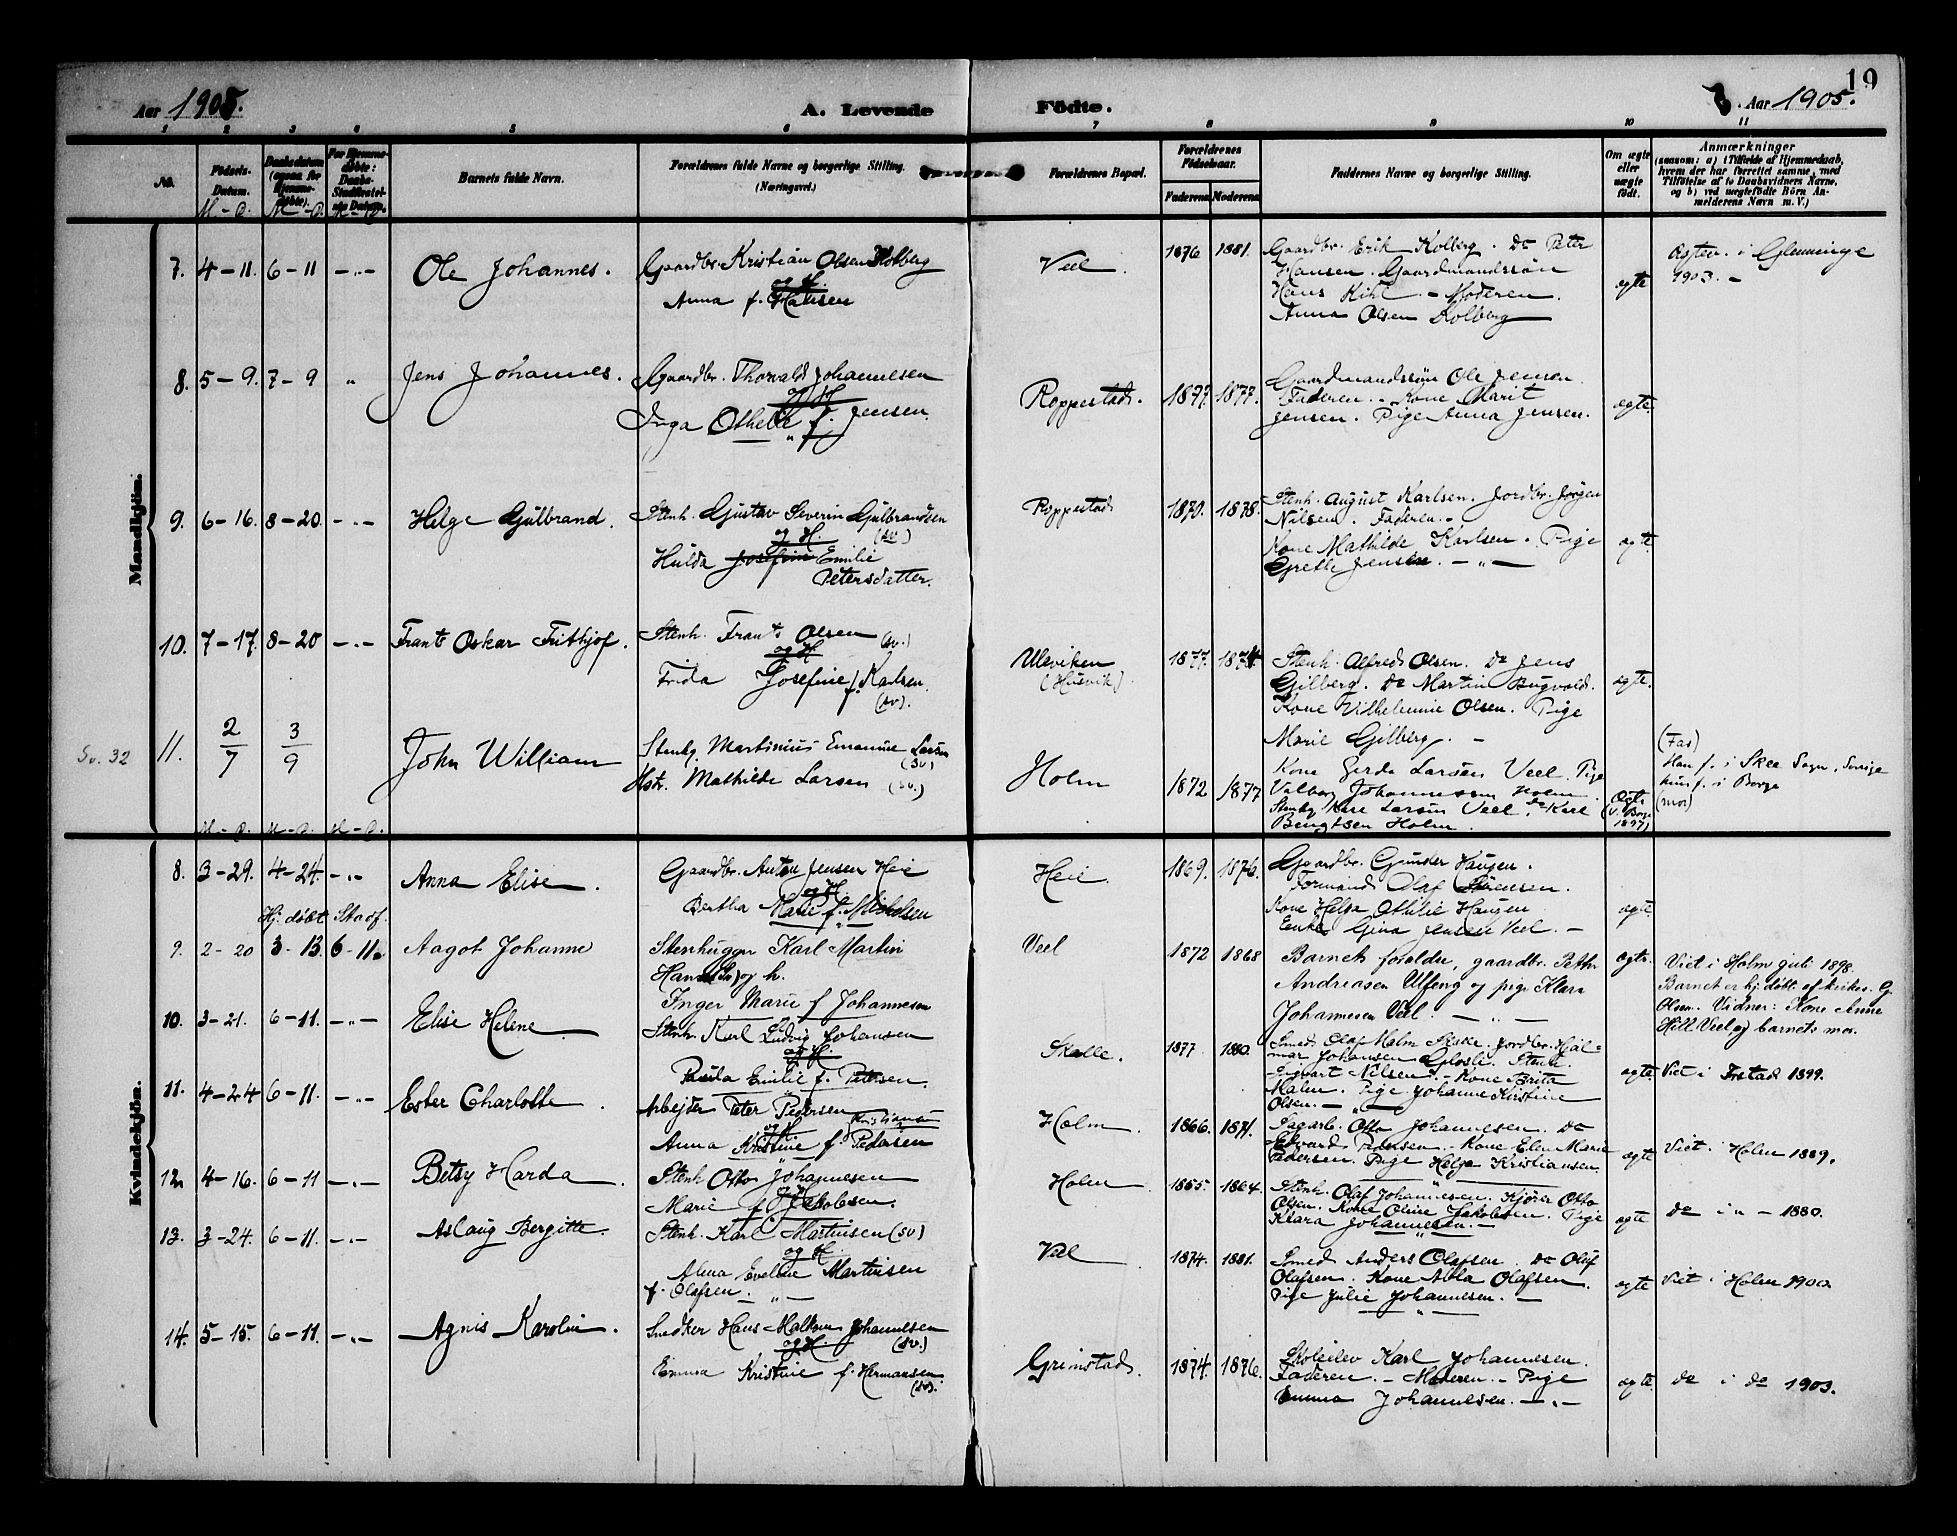 19
Aar 1905.
A. Levende Födte.
Aar 1905.
1 2 3 4 5 6 7 8 9 10 11
No.
Födsels-Datum.
Daabsdatum (ogsaa for Hjemmedøbte).
For Hjemmedøbte: Daabs-Stadfæstelses Datum.
Barnets fulde Navn.
Forældrenes fulde Navne og borgerlige Stilling.
(Næringsvei.)
Forældrenes Bopæl.
Forældrenes Födselsaar.
Faderens Moderens
Faddernes Navne og borgerlige Stilling.
Om ægte eller uægte födt.
Anmærkninger
(saasom: a) i Tilfælde af Hjemmedaab, hvem der har forrettet samme, med Tilföielse af to Daabsvidners Navne, og b) ved uægtefödte Börn Anmelderens Navn m. V.)
M - D. M - D. M - D.
Mandkjön.
7. 4-11. 6-11 -"- Ole Johannes. Gaardbr. Kristian Olsen Kolberg
og H.
Anna f. Hansen
Veel. 1876 1881. Gaardbr. Erik Kolberg. Do Peter
Hansen. Gaardmandssön
Hans Kihl - Moderen.
Anna Olsen Kolberg
ægte
Ægtev. i Glemminge
1903. -
8. 5-9. 7-9 " Jens Johannes. Gaardbr. Thorvald Johannesen
og H
Inga Othelie f. Jensen.
Roppestad. 1877. 1877. Gaardmandssön Ole Jensen.
Faderen. - Kone Marit
Jensen. Pige Anna Jensen.
ægte.
9. 6-16. 8-20. -"- Helge Gulbrand. Stenh. Gustav Severin Gulbrandsen
og H. (sv.)
Hulda Josefine Emilie
Petersdatter.
Roppestad 1870. 1878. Stenh. August Karlsen. Jordbr. Jörgen
Nilsen. Faderen. -
Kone Mathilde Karlsen. Pige
Grethe Jensen. -"-
ægte.
10. 7-17. 8-20 -"- Frants Oskar Frithjof. Stenh. Frants Olsen (sv.)
og H
Frida Josefine f. Karlsen.
(sv).
Ulsviken
(Husvik). 1877. 1874 Stenh. Alfred Olsen. Do Jens
Gilberg. Do Martin
Kone Vilhelmine Olsen. Pige
Marie Gilberg. -
ægte.
Sv. 32
11. 2/7 3/9 John William Stenhg. Martinius Emanuel Larsen
(Sv)
Hstr. Mathilde Larsen (sv.)
Holm 1872 1877 Kone Gerda Larsen Veel. Pige
Valborg Johannessen Holm.
Stenhg Kare Larsen Veel. do Karl
Bengtsen Holm.
Ægte
(v. Borge
1897)
(Far)
Han f. i Skee Sogn, Sverige
hun f. i Borge
(mor)
M - D. M - D. M - D.
Kvindekjön.
8. 3-29. 4-24. -"- Anna Elise. Gaardbr. Anton Jensen Heie
og H
Bertha Marie f. Nicholsen
Heie. 1869. 1876. Gaardbr. Gunder Haugen.
Formand Olaf Sörensen.
Kone Helga Othilie Haugen
Enke Gina Jensen Veel. -
ægte.
Hj. döbt Stadf.
9. 2-20 3-13. 6-11. Aagot Johanne Stenhugger Karl Martin
Hansen og h.
Inger Marie f Johannesen
Veel 1872 1868 Barnets forældre, gaardbr. Petter
Andreasen Ulfeng og pige Klara
Johannesen Veel. -"-
ægte.
Viet i Holm juli 1898.
Barnet er hj. döbt af kirkes. G.
Olsen. Vidner: Kone Anne
Hill Veel og barnets mor.
10. 3-21. 6-11. -"- Elise Helene Stenh. Karl Ludvig Johansen
og H.
Paula Emilie f. Petersen.
Skolle. 1877 1880. Smed Olaf Malm Skolle. Jordbr. Hjal-
mar Johansen Glosli. Stenh.
Ingvart Nilsen. - Kone Brita
Malm. Pige Johanne Kirstine
Olsen. -"-
ægte. Viet i Idd 1899.
11. 4-24 6-11. -"- Ester Charlotte. Arbejder Peter Pedersen
og H Kristiansen
Anna Kristine f. Pedersen
Holm. 1866. 1871. Sagarb. Otto Johannesen. Do
Edvard Pedersen. - Kone Elen Marie
Pedersen. Pige Helga Kristiansen
ægte Viet i Holm 1889.
12. 4-16. 6-11 -"- Betsy Harda. Stenh Otto Johannesen
og H
Marie f. Jakobsen.
Holm 1865. 1864. Stenh. Olaf Johannesen. Kjörer Otto
Olsen. Kone Oline Jakobsen. Pige
Klara Johannesen. -
ægte do i " - 1880.
13. 3-24. 6-11. -"- Aslaug Bergitte. Stenh. Karl Martinsen (sv)
og H.
Alma Eveline Martinsen
f. Olafsen. -"-
Veel 1874. 1881. Smed Anders Olafsen. Do Olaf
Olafsen. Kone Abla Olafsen
Pige Julie Johannesen. -
ægte Viet i Holm 1900.
14. 5-15. 6-11. -"- Agnis Karolin. Snedker Hans Malkom Johannesen
og H. (sv.)
Emma Kristine f. Hermansen
(sv).
Grimstad. 1874. 1876. Skoleelev Karl Johannesen.
Faderen. - Moderen. - Pige
Emma Johannesen. -"-
ægte. do i do 1903.